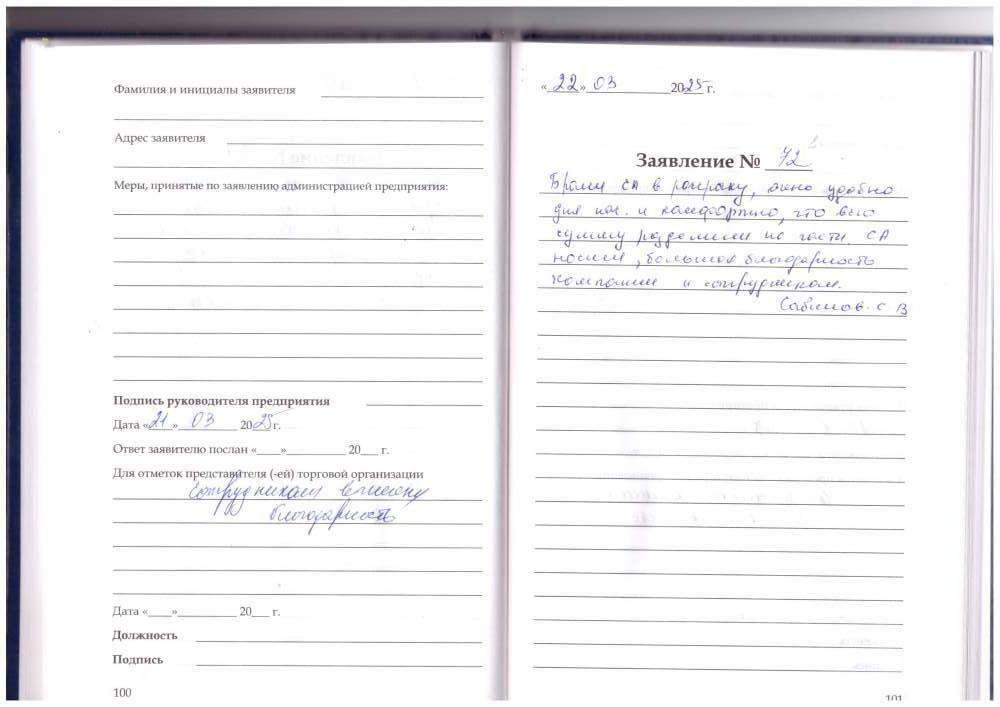 Фамилия и инициалы заявителя
Адрес заявителя
Меры, принятые по заявлению администрацией предприятия:
Подпись руководителя предприятия
Дата «21» 03 2025 г.
Ответ заявителю послан «____»__________ 20___ г.
Для отметок представителя (-ей) торговой организации
сотрудникам вынесену
благодарность
Дата «____»__________ 20___ г.
Должность
Подпись
100
«22» 03 2025 г.
Заявление № 72
Брали СА в рассрочку, очень удобно
для нас. и комфортно, что всю
сумму разделили на части. СА
носим, большая благодарность
компании и сотрудникам.
С В
101